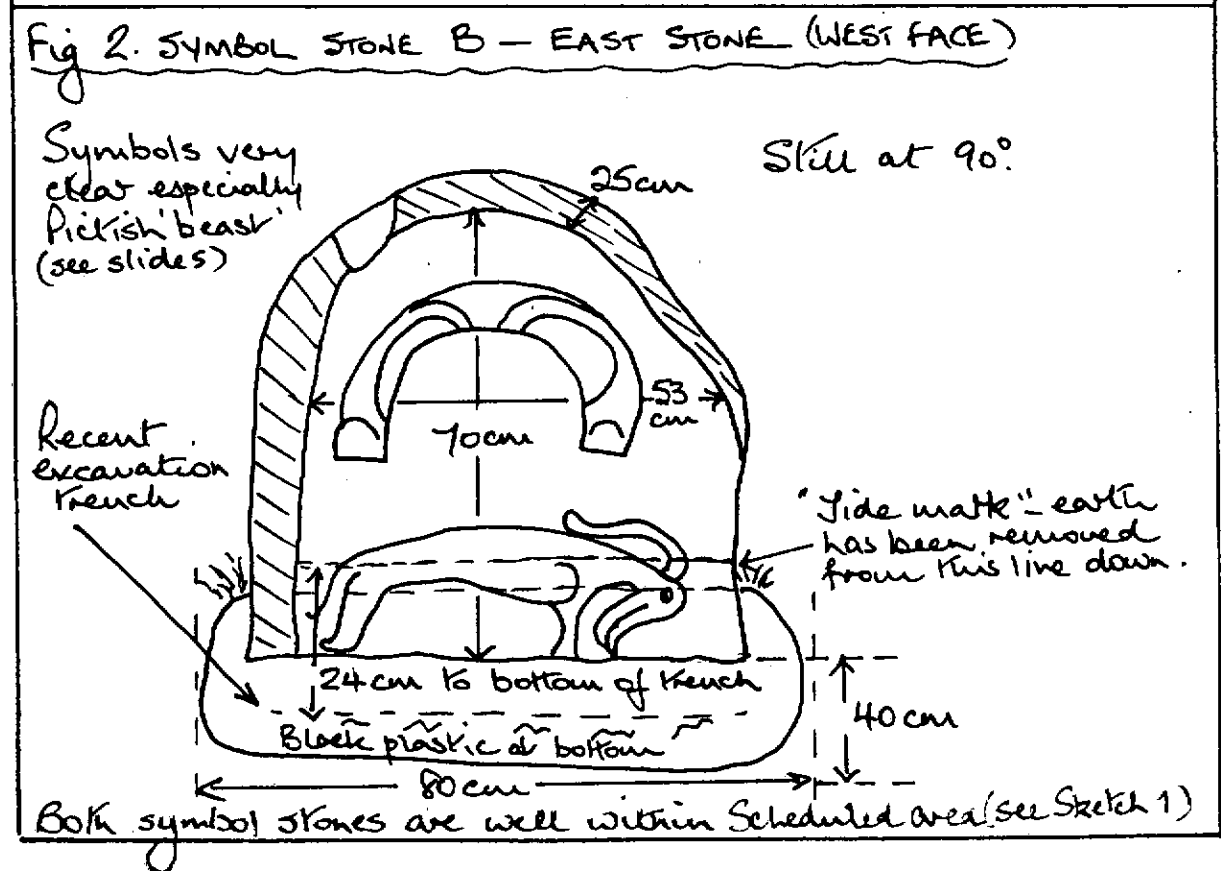 Fig 2. SYMBOL STONE B — EAST STONE (WEST FACE)
Symbols very
clear especially
Pictish 'beast'
(see slides)
Still at 90°.
25cm
53
cm
70cm
Recent
excavation
trench
"Tide mark" - earth
has been removed
from this line down.
24cm to bottom of trench
40cm
Black plastic at bottom
80cm
Both symbol stones are well within Scheduled area (see Sketch 1)